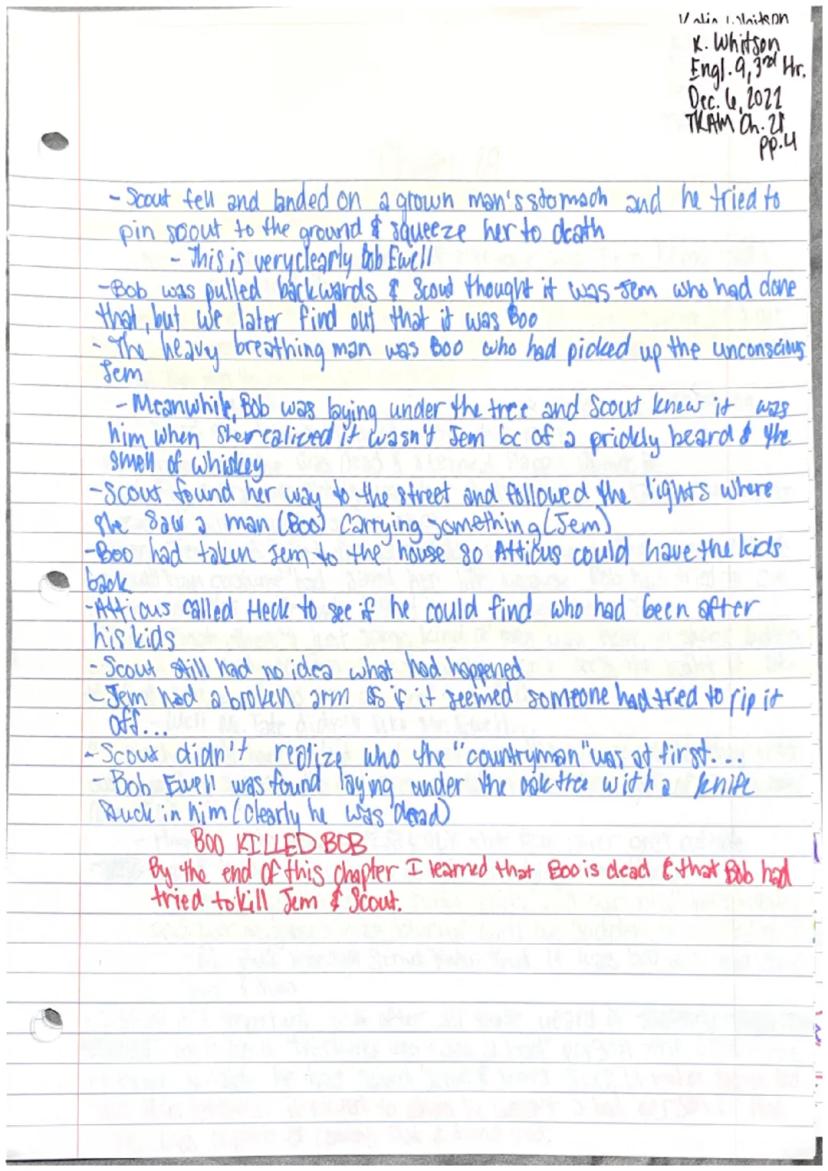 K. Whitson
Engl. 9, 3rd Hr.
Dec. 6, 2022
TKAM Ch. 28
pp. 4
- Scout fell and landed on a grown man's stomach and he tried to
pin scout to the ground & squeeze her to death
- This is very clearly Bob Ewell
- Bob was pulled backwards & Scout thought it was Jem who had done
that, but we later find out that it was Boo
- The heavy breathing man was Boo who had picked up the unconscious
Jem
- Meanwhile, Bob was laying under the tree and Scout knew it was
him when she realized it wasn't Jem bc of a prickly beard & the
smell of whiskey
- Scout found her way to the street and followed the lights where
she saw a man (Boo) carrying something (Jem)
- Boo had taken Jem to the house so Atticus could have the kids
back
- Atticus called Heck to see if he could find who had been after
his kids
- Scout still had no idea what had happened
- Jem had a broken arm as if it seemed someone had tried to rip it
off...
- Scout didn't realize who the "countryman" was at first...
- Bob Ewell was found laying under the oak tree with a knife
stuck in him (clearly he was dead)
BOO KILLED BOB
By the end of this chapter I learned that Boo is dead & that Bob had
tried to kill Jem & Scout.